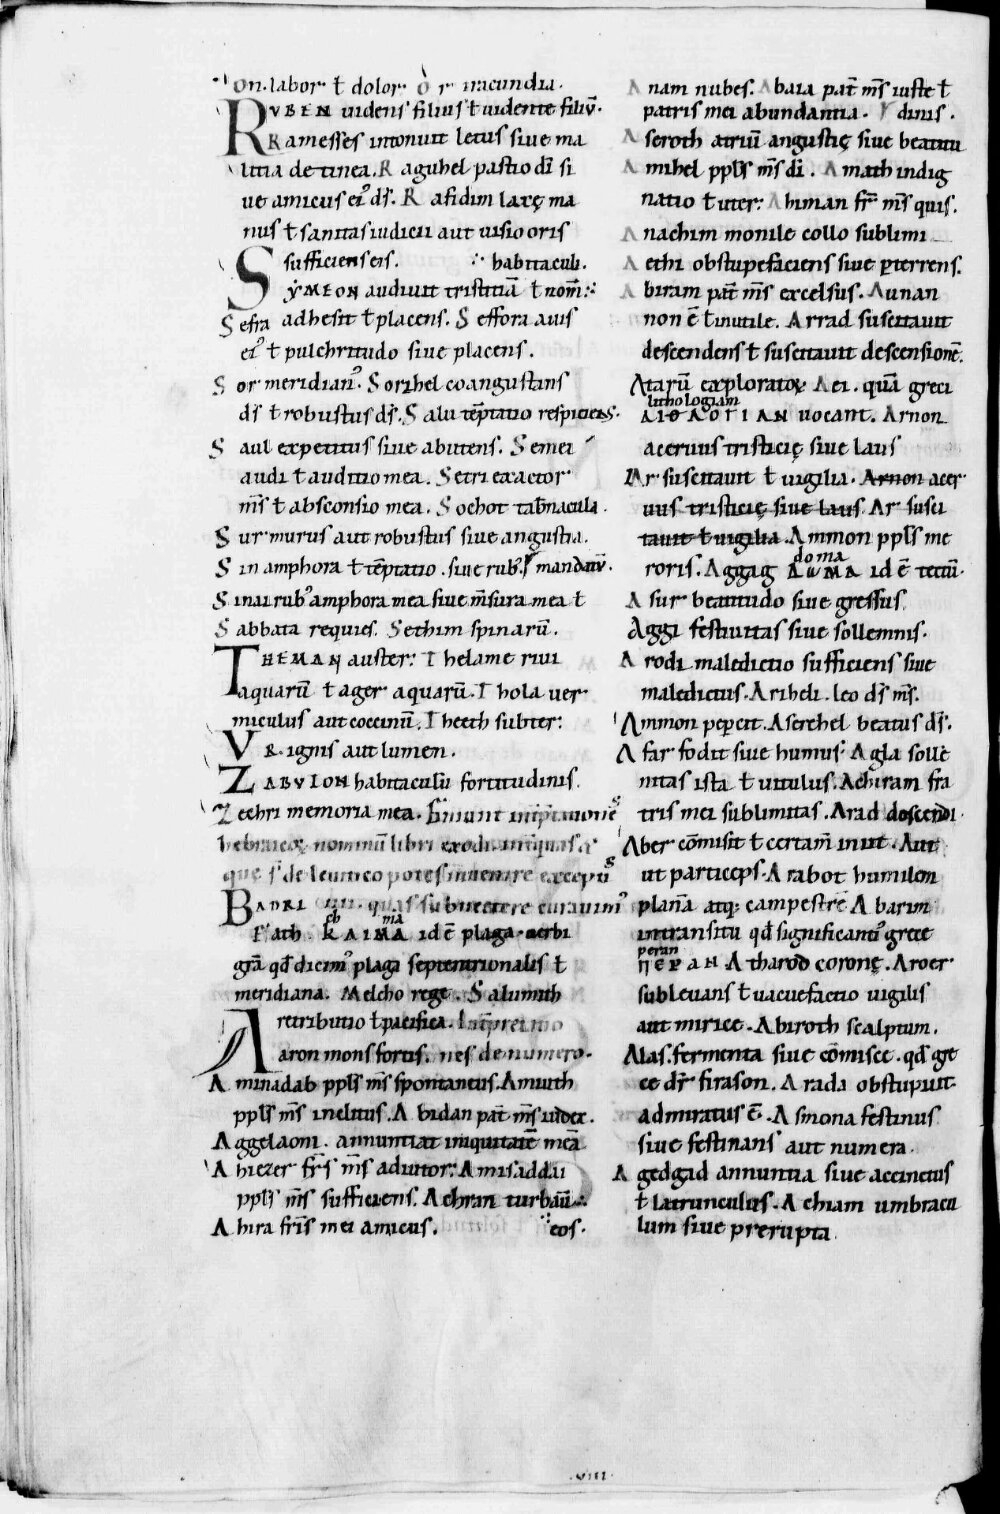 on. labor ł dolor. Or iracundia.
RVBEN uidens filius ł uidente filiū.
Ramesses intonuit letus siue ma
litia de tinea. Raguhel pastio dī si
ue amicus ei᾽ dī. Rafidim laxę ma
nus ł sanitas iudicii aut uisio oris
sufficiens eis. habitaculi.
SẏMEON audiuit tristitiā ł nom̄
Sefra adhesit ł placens. Seffora auis
ei᾽ ł pulchritudo siue placens.
Sor meridian᾽. Sorihel coangustans
dī ł robustus dī. Salu tēptatio respiciens.
Saul expetitus siue abutens. Semei
audi ł auditio mea. Setri exactor
m̄s ł absconsio mea. Sochot tab̄nacula.
Sur murus aut robustus siue angustia.
Sin amphora ł tēptatio. siue rub᾽. ł mandatū.
Sinai rub᾽ amphora mea siue m̄sura mea ł
Sabbata requies. Sethim spinarū.
THEMAN auster: Thelame riui
aquarū ł ager aquarū. Thola uer
miculus aut coccinū. Theeth subter:
VR. ignis aut lumen.
ZABVLON habitaculū fortitudinis.
Zechri memoria mea. Finiunt int̄p̄tationes
hebraicoꝝ nominū libri exodi
que s̄ de leuitico potes inuenire exceptis
BADRI IIII. quas subnectere curauim᾽
Fath. KAIMA id ē plaga uerbi
grā qd̄ dicim᾽ plaga septentrionalis ł
meridiana. Melcho rege. Salumith
retributio ł pacifica. Int̄pretatio
Aaron mons fortis. nes de numero.
Aminadab ppl̄s m̄s spontaneus. Amiuth
ppl̄s m̄s inclitus. Abidan pat̄ m̄s iudex.
Aggelaoni. annuntiat iniquitatē meā
Ahiezer fr̄s m̄s adiutor: Amisaddai
ppl̄s m̄s sufficiens. Achran turbauit
Ahira fr̄is mei amicus. eos.
Anam nubes. Abaia pat̄ m̄s iste ł
patris mei abundantia. dinis.
Aseroth atriū angustię siue beatitu
Amihel ppl̄s m̄s dī. Amath indig
natio ł uter: Ahiman fr̄ m̄s quis.
Anachim monile collo sublimi
Aethi obstupefaciens siue ꝑterrens.
Abiram pat̄ m̄s excelsus. Aunan
non ē ł inutile. Arrad suscitauit
descendens ł suscitauit descensionē.
Atarū exploratoꝝ Aei. quā greci
lithologiam
ΛΙΘΛΟΓΙΑΝ uocant. Arnon
aceruus tristicię siue laus
Ar suscitauit ł uigilia. Arnon acer
uus tristicię siue laus. Ar susci
tauit ł uigilia. Ammon ppl̄s me
doma
roris. Aggag ΔωΜΑ id ē tectū.
Asur beatitudo siue gressus
Aggi festiuitas siue sollemnis.
Arodi maledictio sufficiens siue
maledictus. Ariheli. leo dī m̄s.
Ammon peperit. Aserehel beatus dī.
Afar fodit siue humus: Agla sollē
nitas ista ł uitulus. Achiram fra
tris mei sublimitas. Arad descendi.
Aber cōmisit ł certam̄ iniit. Aut
ut particeps. Arabot humilem
planā atq; campestrē Abarim
in transitu qd̄ significanti᾽ grece
peran
ΠΕΡΑΝ Atharod coronę. Aroer
subleuans ł uacuefactio uigilis
aut mirice. Abiroth scalptum.
Alas. fermenta siue cōmisce. qd̄ gre
ce dr̄ firason. Arada obstupuit
admiratus ē. Asmona festinus
siue festinans aut numera.
Agedgad annuntia siue accinctus
ł latrunculus. Achiam umbracu
lum siue prerupta.
.VIII.